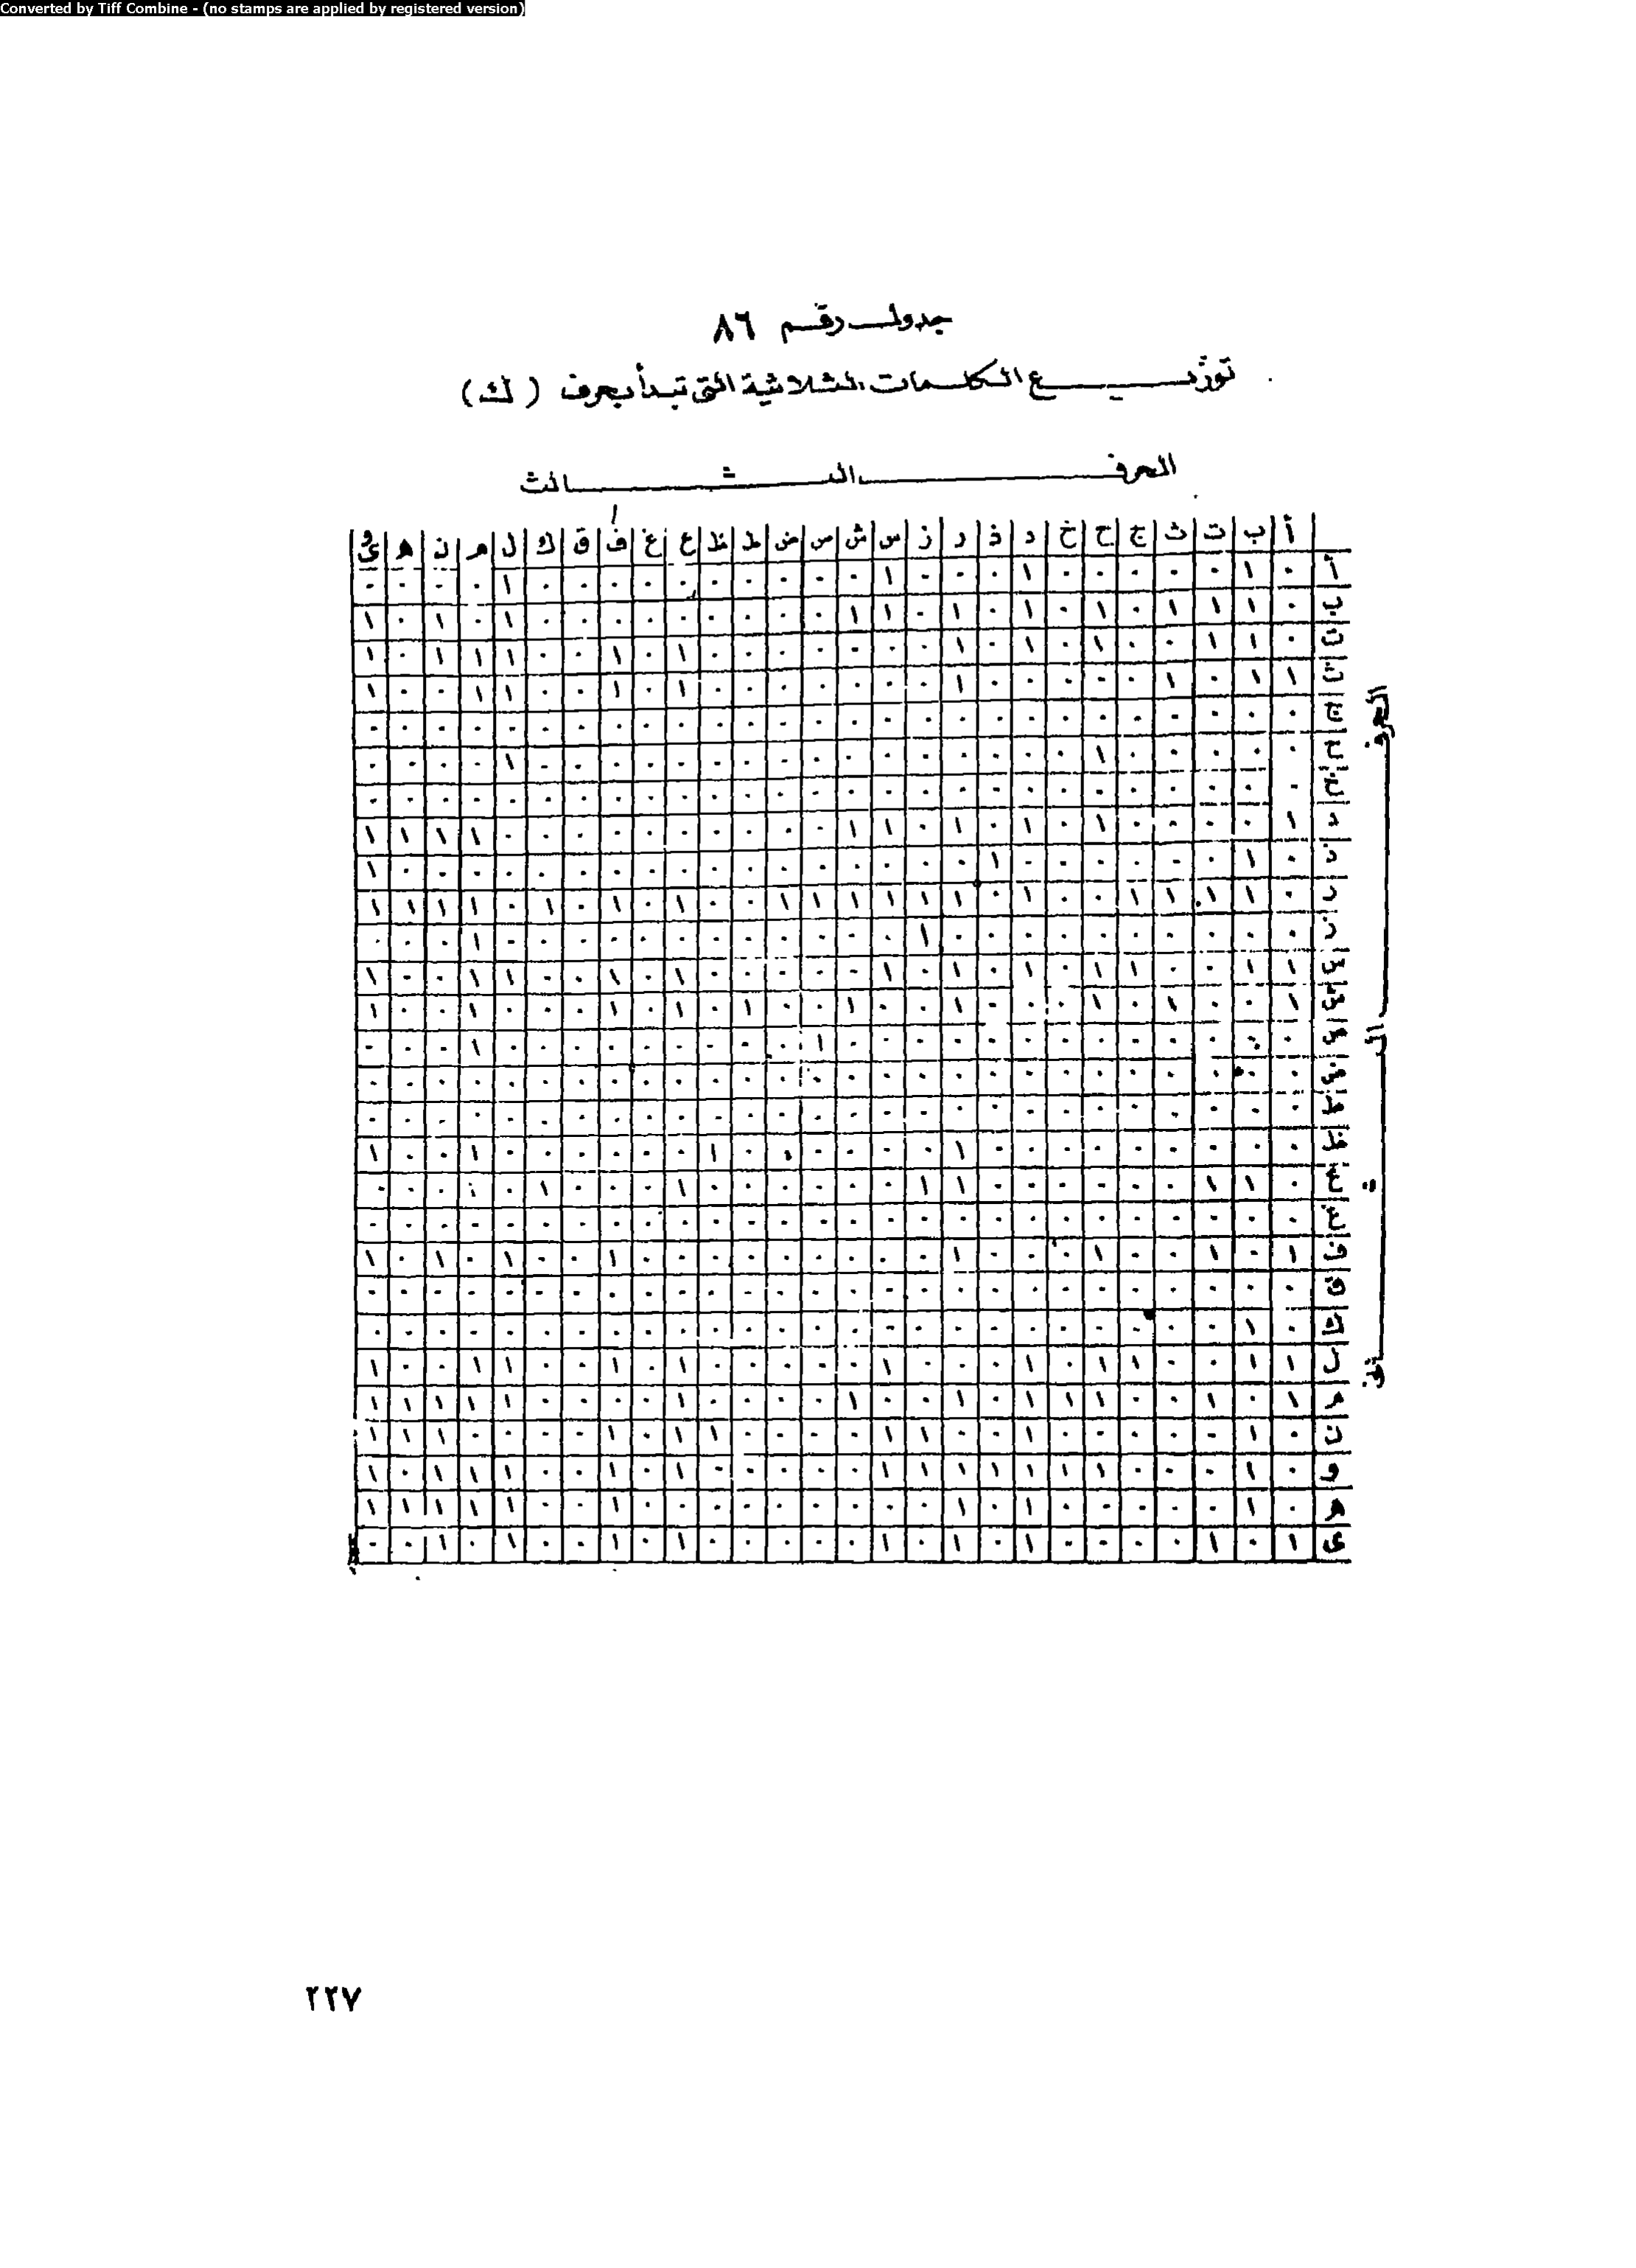 Converted by Tiff Combine - (no stamps are applied by registered version)
جدول رقم ٨٦
توزيع الكلمات الثلاثية التى تبدأ بحرف ( ك )
الحرف الثالث
أ ب ت ث ج ح خ د ذ ر ز س ش ص ض ط ظ ع غ ف ق ك ل م ن ه و ى
الحرف الثانى
أ ٠ ١ ٠ ٠ ٠ ٠ ٠ ١ ٠ ٠ ٠ ١ ٠ ٠ ٠ ٠ ٠ ٠ ٠ ٠ ٠ ٠ ١ ٠ ٠ ٠ ٠
ب ٠ ١ ١ ١ ٠ ١ ٠ ١ ٠ ١ ٠ ١ ١ ٠ ٠ ٠ ٠ ٠ ٠ ٠ ٠ ٠ ١ ٠ ١ ٠ ١
ت ٠ ١ ١ ٠ ٠ ١ ٠ ١ ٠ ١ ٠ ٠ ٠ ٠ ٠ ٠ ٠ ١ ٠ ١ ٠ ٠ ١ ١ ١ ٠ ١
ث ١ ١ ٠ ١ ٠ ٠ ٠ ٠ ٠ ١ ٠ ٠ ٠ ٠ ٠ ٠ ٠ ١ ٠ ١ ٠ ٠ ١ ١ ٠ ٠ ١
ج ٠ ٠ ٠ ٠ ٠ ٠ ٠ ٠ ٠ ٠ ٠ ٠ ٠ ٠ ٠ ٠ ٠ ٠ ٠ ٠ ٠ ٠ ٠ ٠ ٠ ٠ ٠
ح ٠ ٠ ٠ ٠ ٠ ١ ٠ ٠ ٠ ٠ ٠ ٠ ٠ ٠ ٠ ٠ ٠ ٠ ٠ ٠ ٠ ٠ ١ ٠ ٠ ٠ ٠
خ ٠ ٠ ٠ ٠ ٠ ٠ ٠ ٠ ٠ ٠ ٠ ٠ ٠ ٠ ٠ ٠ ٠ ٠ ٠ ٠ ٠ ٠ ٠ ٠ ٠ ٠ ٠
د ١ ٠ ٠ ٠ ٠ ١ ٠ ١ ٠ ١ ٠ ١ ١ ٠ ٠ ٠ ٠ ٠ ٠ ٠ ٠ ٠ ٠ ١ ١ ١ ١
ذ ٠ ١ ٠ ٠ ٠ ٠ ٠ ٠ ١ ٠ ٠ ٠ ٠ ٠ ٠ ٠ ٠ ٠ ٠ ٠ ٠ ٠ ٠ ٠ ٠ ٠ ١
ر ٠ ١ ١ ١ ١ ٠ ٠ ١ ٠ ١ ١ ١ ١ ١ ١ ٠ ٠ ١ ٠ ١ ٠ ١ ٠ ١ ١ ١ ١
ز ٠ ٠ ٠ ٠ ٠ ٠ ٠ ٠ ٠ ٠ ١ ٠ ٠ ٠ ٠ ٠ ٠ ٠ ٠ ٠ ٠ ٠ ٠ ١ ٠ ٠ ٠
س ١ ١ ٠ ٠ ١ ١ ٠ ١ ٠ ١ ٠ ١ ٠ ٠ ٠ ٠ ٠ ١ ٠ ١ ٠ ٠ ١ ١ ٠ ٠ ١
ش ١ ٠ ٠ ١ ٠ ١ ٠ ٠ ٠ ١ ٠ ٠ ١ ٠ ٠ ١ ٠ ١ ٠ ١ ٠ ٠ ٠ ١ ٠ ٠ ١
ص ٠ ٠ ٠ ٠ ٠ ٠ ٠ ٠ ٠ ٠ ٠ ٠ ٠ ١ ٠ ٠ ٠ ٠ ٠ ٠ ٠ ٠ ٠ ١ ٠ ٠ ٠
ض ٠ ٠ ٠ ٠ ٠ ٠ ٠ ٠ ٠ ٠ ٠ ٠ ٠ ٠ ٠ ٠ ٠ ٠ ٠ ٠ ٠ ٠ ٠ ٠ ٠ ٠ ٠
ط ٠ ٠ ٠ ٠ ٠ ٠ ٠ ٠ ٠ ٠ ٠ ٠ ٠ ٠ ٠ ٠ ٠ ٠ ٠ ٠ ٠ ٠ ٠ ٠ ٠ ٠ ٠
ظ ٠ ٠ ٠ ٠ ٠ ٠ ٠ ٠ ٠ ١ ٠ ٠ ٠ ٠ ٠ ٠ ١ ٠ ٠ ٠ ٠ ٠ ٠ ١ ٠ ٠ ١
ع ٠ ١ ١ ٠ ٠ ٠ ٠ ٠ ٠ ١ ١ ٠ ٠ ٠ ٠ ٠ ٠ ١ ٠ ٠ ٠ ١ ٠ ١ ٠ ٠ ٠
غ ٠ ٠ ٠ ٠ ٠ ٠ ٠ ٠ ٠ ٠ ٠ ٠ ٠ ٠ ٠ ٠ ٠ ٠ ٠ ٠ ٠ ٠ ٠ ٠ ٠ ٠ ٠
ف ١ ٠ ١ ٠ ٠ ١ ٠ ٠ ٠ ١ ٠ ٠ ٠ ٠ ٠ ٠ ٠ ٠ ٠ ١ ٠ ٠ ١ ٠ ١ ٠ ١
ق ٠ ٠ ٠ ٠ ٠ ٠ ٠ ٠ ٠ ٠ ٠ ٠ ٠ ٠ ٠ ٠ ٠ ٠ ٠ ٠ ٠ ٠ ٠ ٠ ٠ ٠ ٠
ك ٠ ١ ٠ ٠ ٠ ٠ ٠ ٠ ٠ ٠ ٠ ٠ ٠ ٠ ٠ ٠ ٠ ٠ ٠ ٠ ٠ ٠ ٠ ٠ ٠ ٠ ٠
ل ١ ١ ٠ ٠ ١ ١ ٠ ١ ٠ ٠ ٠ ١ ٠ ٠ ٠ ٠ ٠ ١ ٠ ١ ٠ ٠ ١ ١ ٠ ٠ ١
م ١ ٠ ١ ٠ ٠ ١ ١ ١ ٠ ١ ٠ ٠ ١ ٠ ٠ ٠ ٠ ١ ٠ ٠ ٠ ٠ ١ ١ ١ ١ ١
ن ٠ ١ ٠ ٠ ٠ ٠ ٠ ١ ٠ ٠ ١ ١ ٠ ٠ ٠ ٠ ١ ١ ٠ ١ ٠ ٠ ٠ ٠ ١ ١ ١
و ٠ ١ ٠ ٠ ٠ ١ ١ ١ ١ ١ ١ ١ ٠ ٠ ٠ ٠ ٠ ١ ٠ ١ ٠ ٠ ١ ١ ١ ٠ ١
ه ٠ ١ ٠ ٠ ٠ ٠ ٠ ١ ٠ ١ ٠ ٠ ٠ ٠ ٠ ٠ ٠ ٠ ٠ ١ ٠ ٠ ١ ١ ١ ١ ١
ى ١ ٠ ١ ٠ ٠ ٠ ٠ ١ ٠ ١ ٠ ١ ٠ ٠ ٠ ٠ ٠ ١ ٠ ١ ٠ ٠ ١ ٠ ١ ٠ ٠
٢٢٧